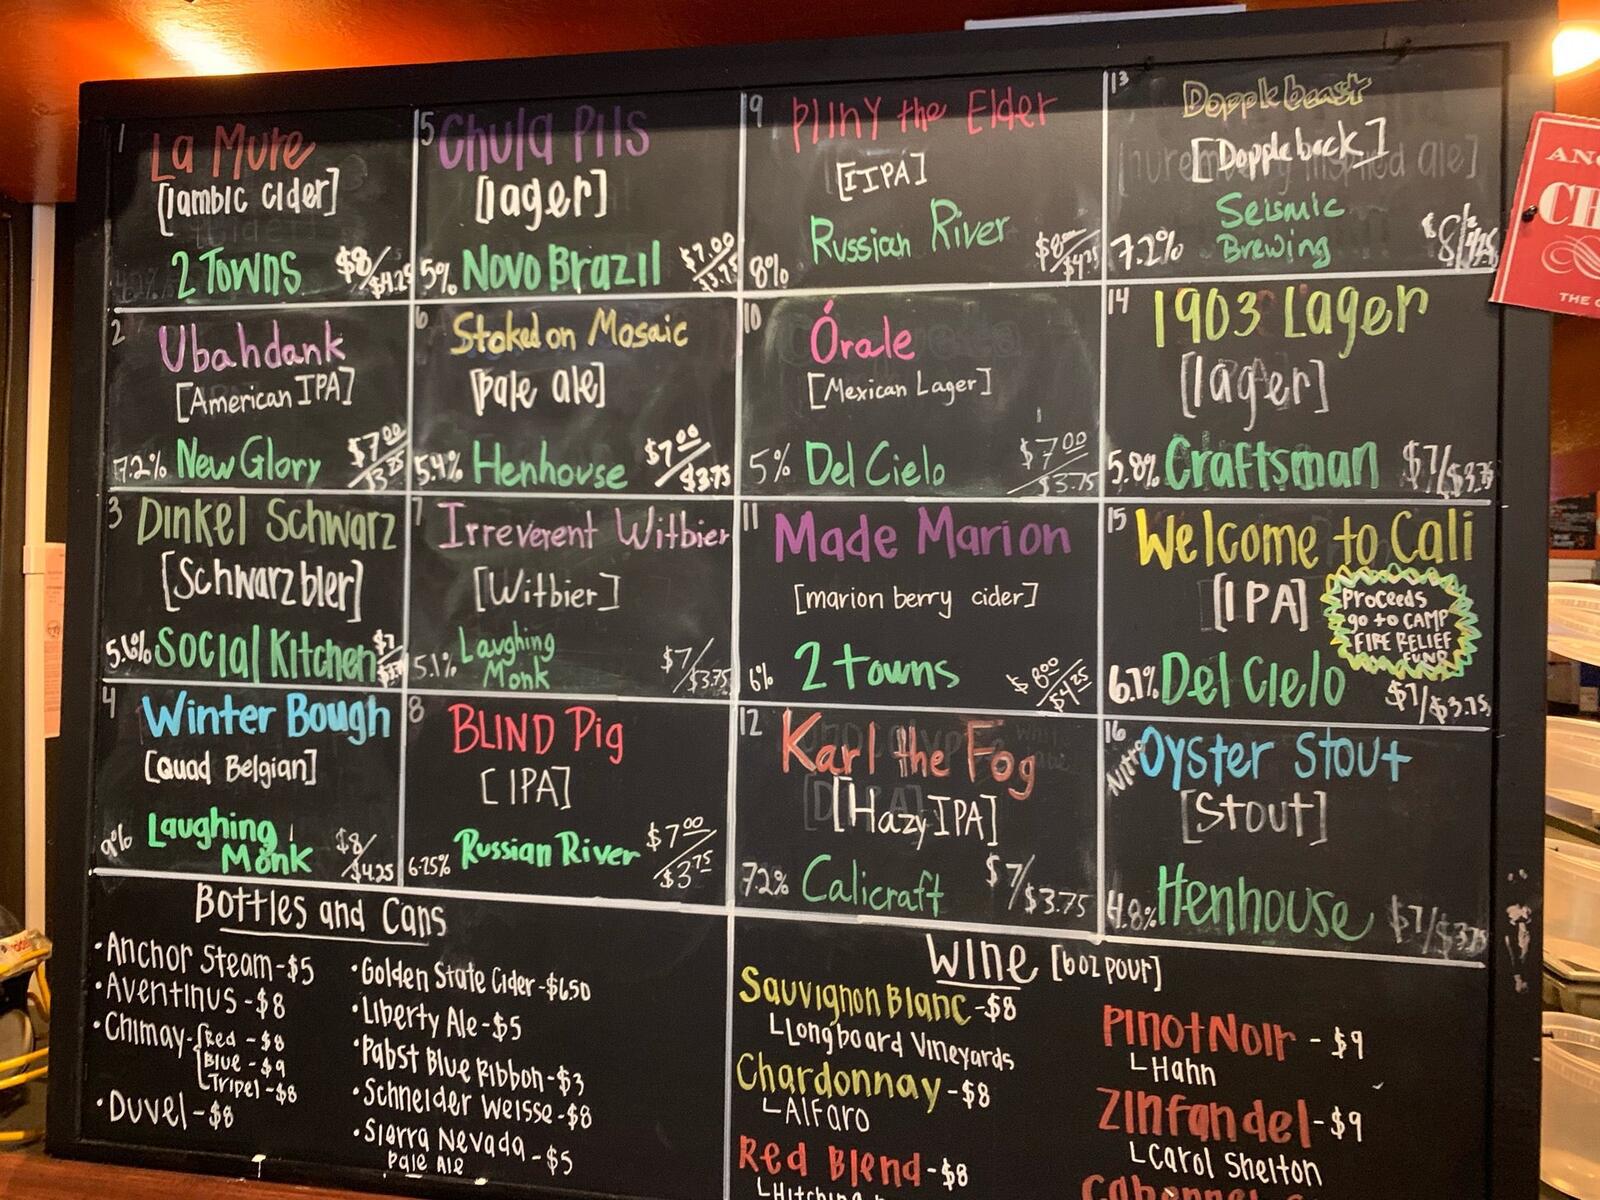 1
La Mure
[lambic cider]
2 Towns
$8/$4.25
2
Ubahdank
[American IPA]
7.2% New Glory $7.00/$3.75
3
Dinkel Schwarz
[Schwarzbier]
5.6% Social Kitchen $7/
4
Winter Bough
[Quad Belgian]
9% Laughing Monk $8/$4.25
5
Chula Pils
[lager]
5% Novo Brazil $7.00/$3.75
6
Stoked on Mosaic
[pale ale]
5.4% Henhouse $7.00/$3.75
7
Irreverent Witbier
[Witbier]
5.1% Laughing Monk $7/$3.75
8
BLIND Pig
[IPA]
6.25% Russian River $7.00/$3.75
9
Pliny the Elder
[IIPA]
8% Russian River $8.00/$4.25
10
Órale
[Mexican Lager]
5% Del Cielo $7.00/$3.75
11
Made Marion
[marion berry cider]
6% 2 towns $8.00/$4.25
12
Karl the Fog
[Hazy IPA]
7.2% Calicraft $7/$3.75
13
Dopplebeast
[Dopplebock]
7.2% Seismic Brewing $8/4.25
14
1903 Lager
[lager]
5.8% Craftsman $7/$3.75
15
Welcome to Cali
[IPA]
Proceeds
go to CAMP
FIRE RELIEF
FUND
6.7% Del Cielo $7/$3.75
16
Nitro Oyster Stout
[Stout]
4.8% Henhouse $7/$3.75
Bottles and Cans
• Anchor Steam - $5
• Aventinus - $8
• Chimay - Red - $8
Blue - $9
Tripel - $8
• Duvel - $8
• Golden State Cider - $6.50
• Liberty Ale - $5
• Pabst Blue Ribbon - $3
• Schneider Weisse - $8
• Sierra Nevada - $5
Pale Ale
Wine [6oz pour]
Sauvignon Blanc - $8
Longboard Vineyards
Chardonnay - $8
Alfaro
Red Blend - $8
Pinot Noir - $9
Hahn
Zinfandel - $9
Carol Shelton
THE